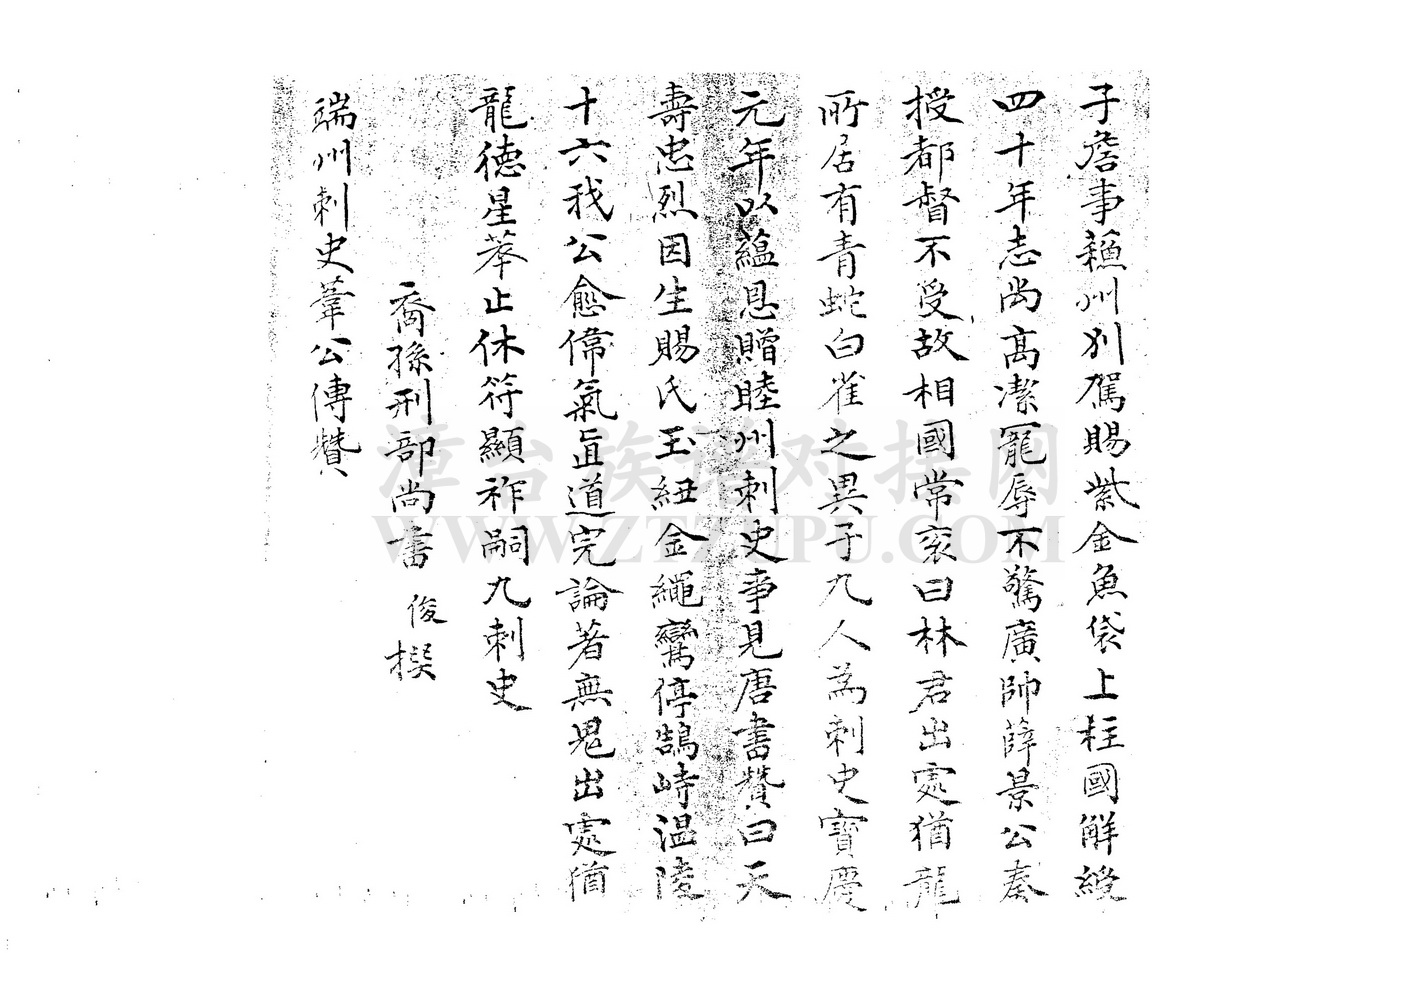 子詹事蘓州別駕賜紫金魚袋上柱國解綬
四十年志尚髙潔寵辱不驚廣帥薛景公奏
授都督不受故相國常衮曰林君出處猶龍
所居有青蛇白雀之異子九人為刺史寳慶
元年以蘊恩贈睦州刺史事見唐書賛曰天
壽忠烈因生賜氏玉紐金繩鸞停鵠峙温陵
十六我公愈偉氣直道完論著無鬼出處猶
龍德星萃止休符顯祚嗣九刺史
裔孫刑部尚書 俊撰
端州刺史葦公傳賛
潭台族谱对接网
WWW.ZTZUPU.COM